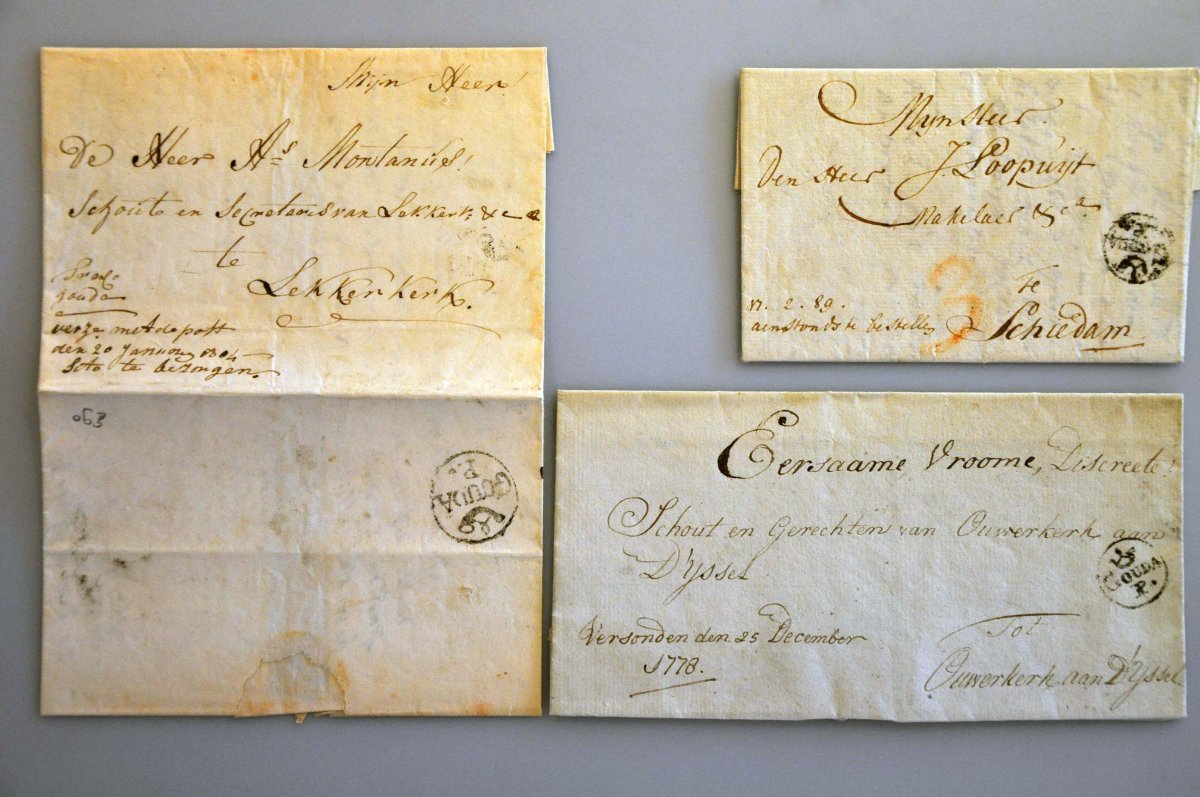 Mijn Heer!
De Heer As Montanus!
Schout en Secretaris van Lekkerk: &c a
te
Lekkerkerk.
gouda
verze met de post
den 20 January 1804
Cito te bezorgen.
063
GOUDA
P.
Mijn Heer
Den Heer J Loopuijt
Makelaer &ca
Te
Schiedam
17. 2. 89.
aenstonds te bestellen
3
GOUDA
P.
Eersaame Vroome, Discreete!
Schout en Gerechten van Ouwerkerk aan
D'Yssel
Versonden den 25 December
1778.
Tot
Ouwerkerk aan D'Yssel
GOUDA
P.